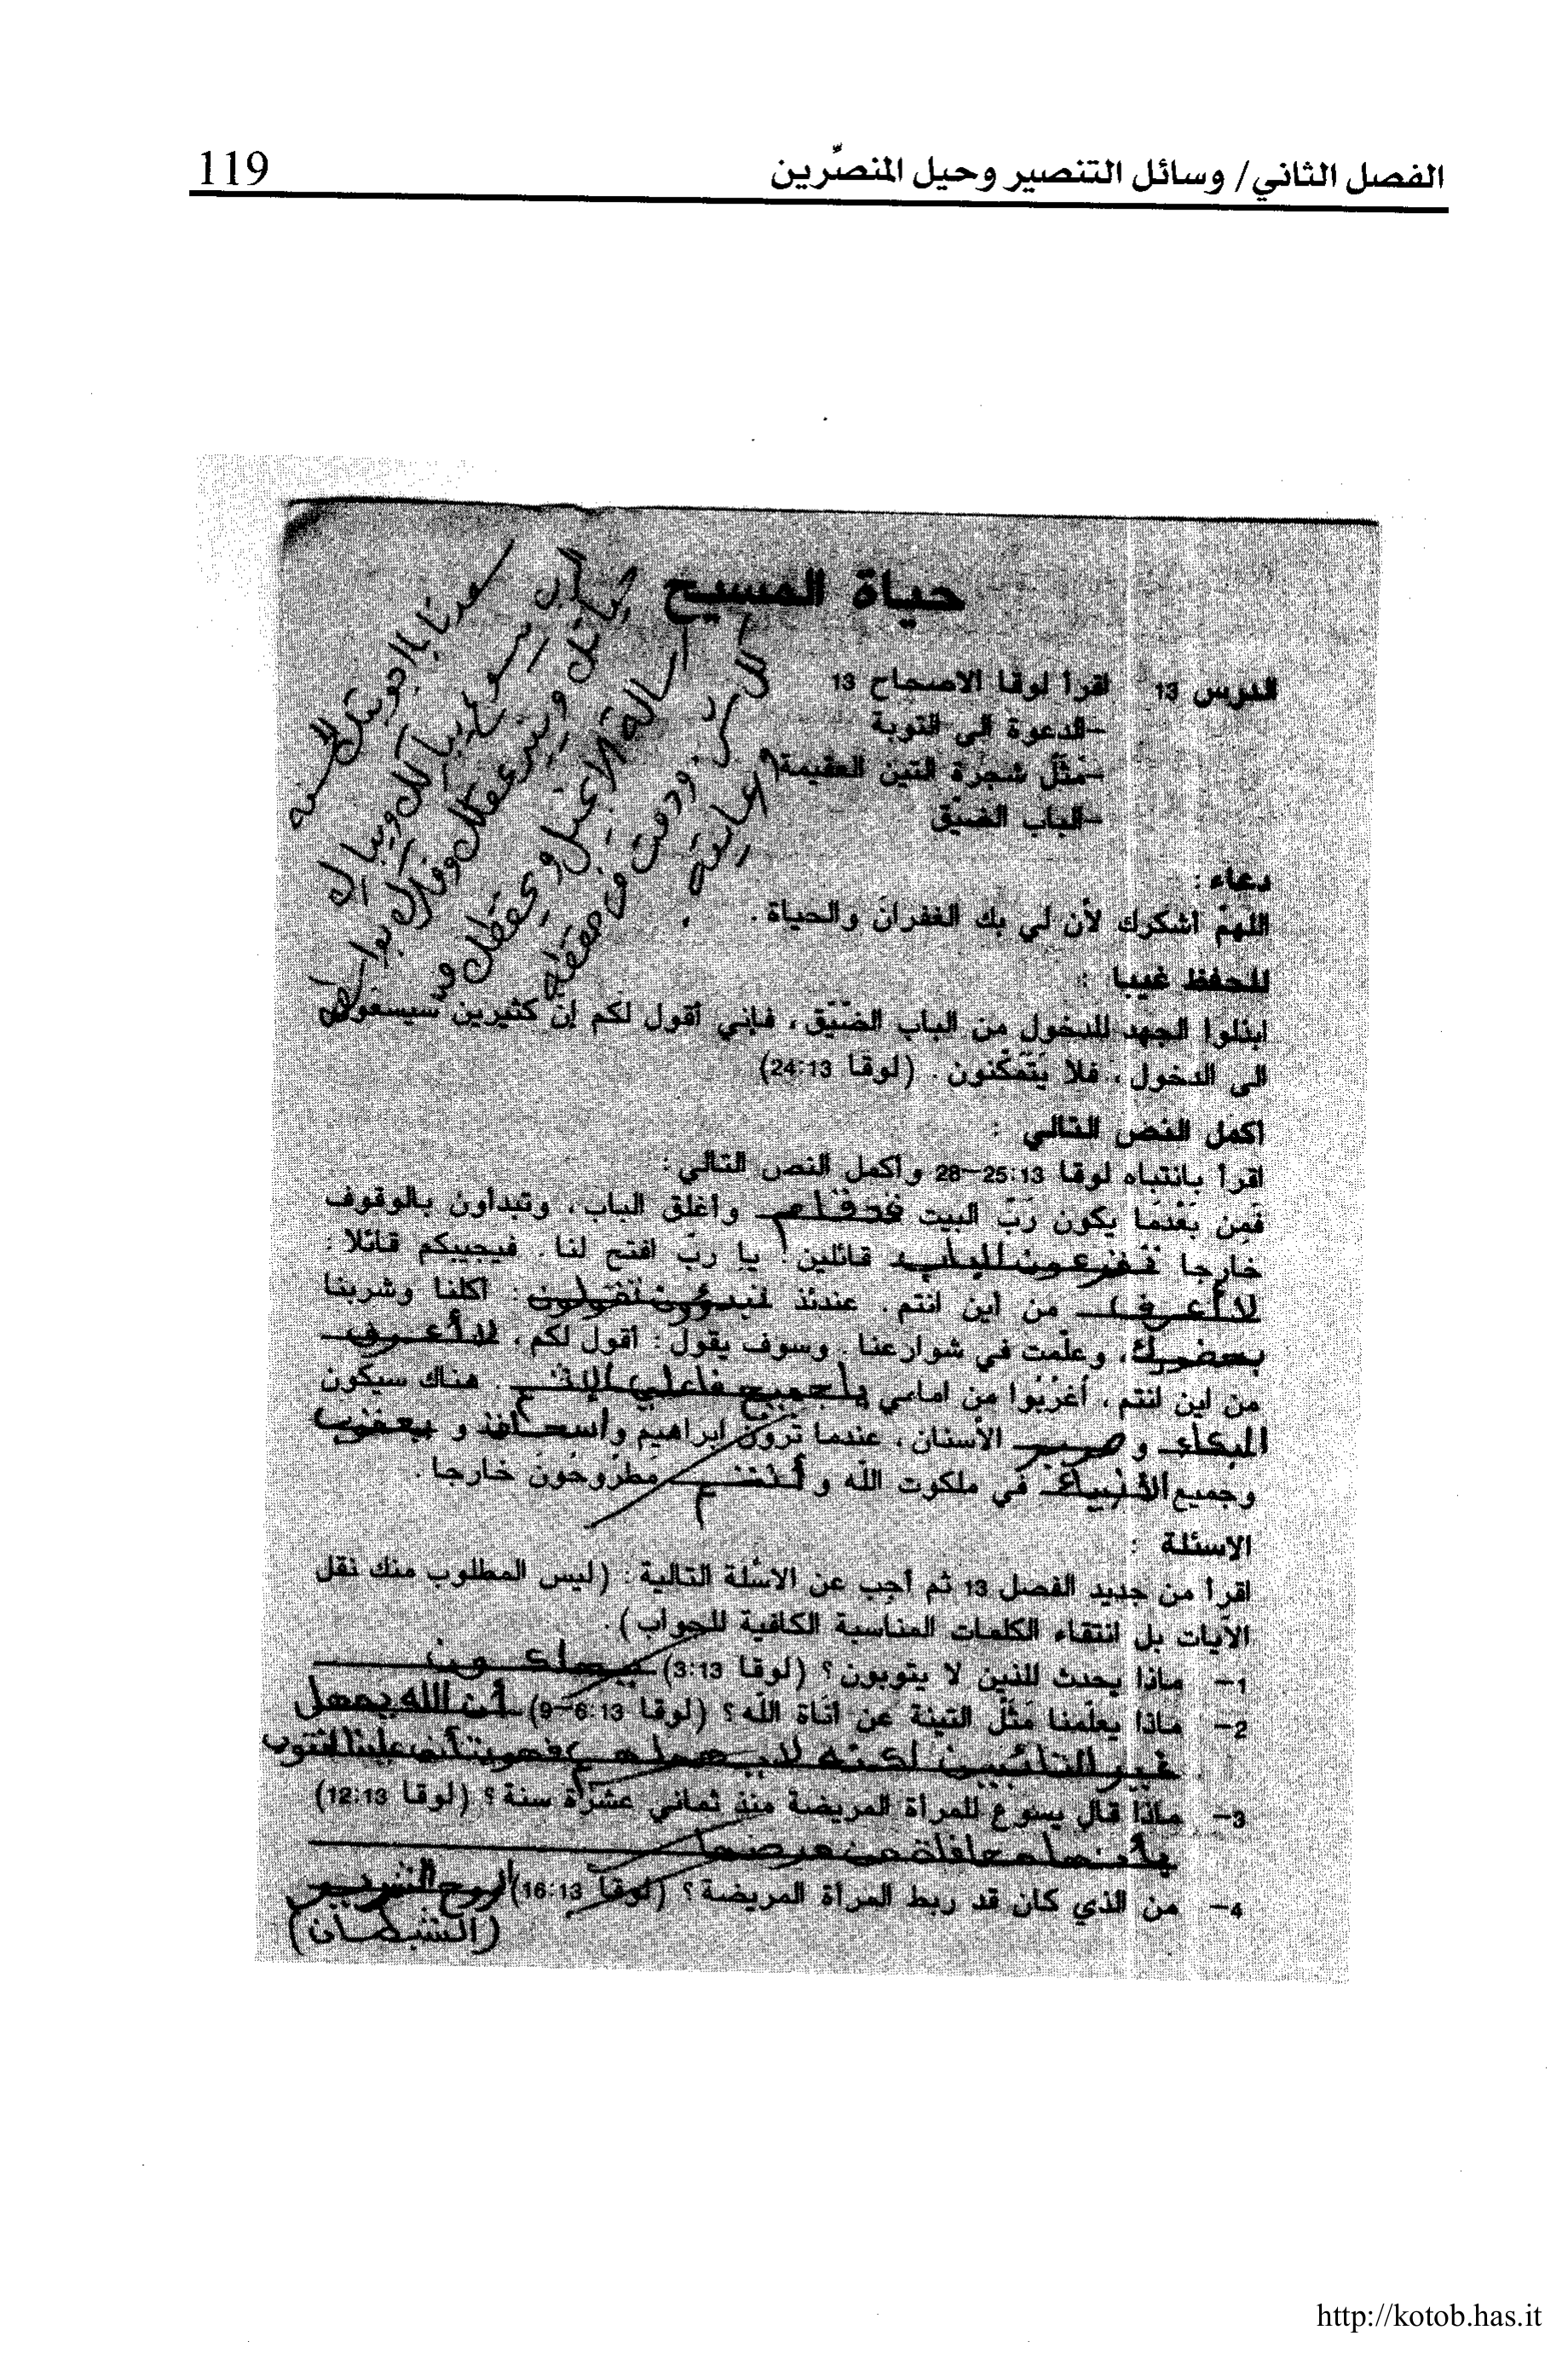 الفصل الثاني/ وسائل التنصير وحيل المنصِّرين
119
حياة المسيح
سرتنا اجوبتك الحسنة
يسوع يباركك ويبارك
حياتك وينير عقلك وفكرك بواسطة
رسالة الإنجيل ويحفظك
الدرس 13 اقرا لوقا الاصحاح 13
-الدعوة الى التوبة
-مَثَل شجرة التين العقيمة
-الباب الضيّق
دعاء :
اللهمّ اشكرك لأن لي بك الغفران والحياة .
للحفظ غيبا :
ابذلوا الجهد للدخول من الباب الضيّق ، فإني أقول لكم إنّ كثيرين سيسعون
الى الدخول ، فلا يَتَمَكّنون . (لوقا 24:13)
اكمل النص التالي :
اقرأ بانتباه لوقا 25:13-28 واكمل النص التالي :
فَمِن بَعْدمَا يكون رَبّ البيت قد قام واغلق الباب ، وتبداون بالوقوف
خارجا تقرعون الباب قائلين : يا ربّ افتح لنا . فيجيبكم قائلا :
لا أعرف من أين انتم . عندئذ تبدؤون تقولون : أكلنا وشربنا
بحضورك ، وعلّمت في شوارعنا . وسوف يقول : أقول لكم ، لا أعرف
من اين انتم ، أغرُبُوا من امامي يا جميع فاعلي الإثم . هناك سيكون
البكاء و صرير الأسنان ، عندما تَرَوْنَ ابراهيم واسحاق و يعقوب
وجميع الأنبياء في ملكوت اللّه و أنتم مطرُوحُون خارجا .
الاسئلة :
اقرأ من جديد الفصل 13 ثم أجب عن الاسئلة التالية : (ليس المطلوب منك نقل
الآيات بل انتقاء الكلمات المناسبة الكافية للجواب) .
1- ماذا يحدث للذين لا يتوبون ؟ (لوقا 3:13) يهلكون
2- مَاذا يعلّمنا مَثَل التينة عن اناة اللّه ؟ (لوقا 6:13-9) أن الله يمهل
غير التائبين لكنه لا يهملهم فهو يتأنى علينا لنتوب
3- ماذا قال يسوع للمرأة المريضة منذ ثماني عشرَة سنة ؟ (لوقا 12:13)
بأنها محلولة من مرضها
4- من الذي كان قد ربط المرأة المريضة ؟ (لوقا 16:13) روح الشرير
(الشيطان)
http://kotob.has.it